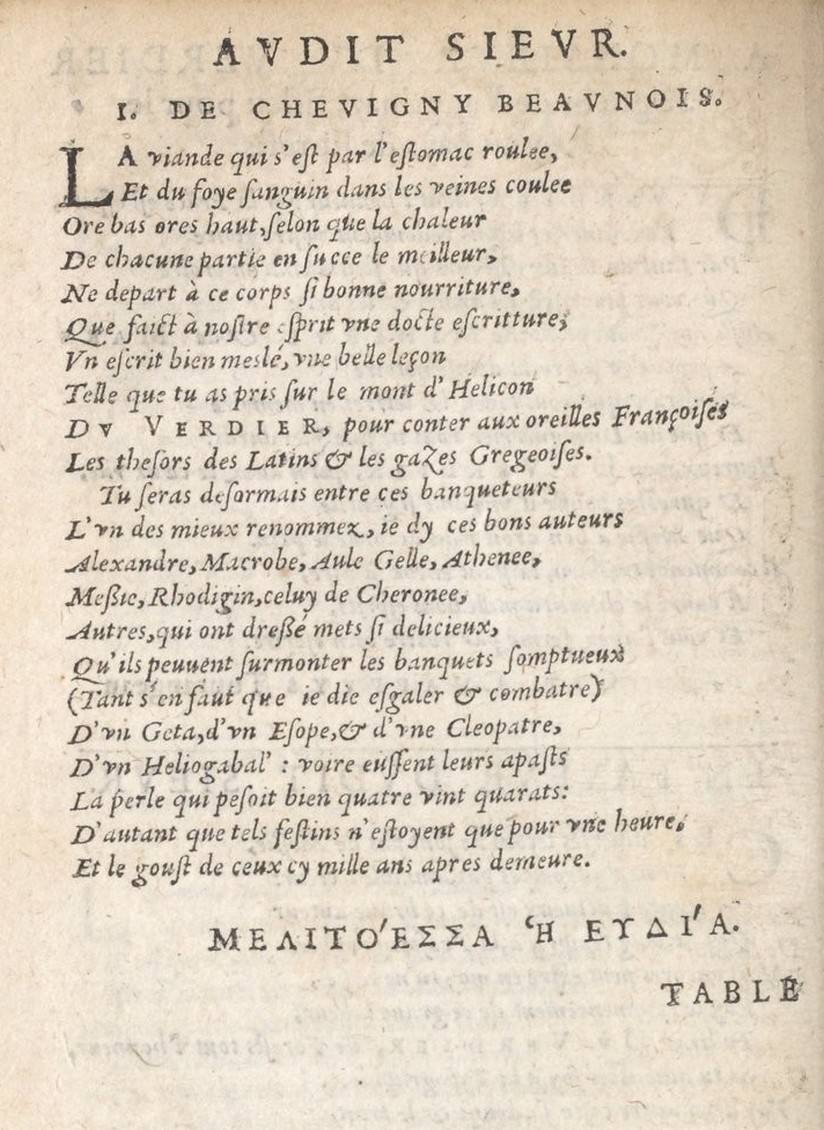 AVDIT SIEVR.
I. DE CHEVIGNY BEAVNOIS.
LA viande qui s'est par l'estomac roulee,
Et du foye sanguin dans les veines coulee
Ore bas ores haut, selon que la chaleur
De chacune partie en succe le meilleur,
Ne depart à ce corps si bonne nourriture,
Que faict à nostre esprit vne docte escritture;
Vn escrit bien meslé, vne belle leçon
Telle que tu as pris sur le mont d'Helicon
DV VERDIER, pour conter aux oreilles Françoises
Les thesors des Latins & les gazes Gregeoises.
Tu seras desormais entre ces banqueteurs
L'vn des mieux renommez, ie dy ces bons auteurs
Alexandre, Macrobe, Aule Gelle, Athenee,
Messie, Rhodigin, celuy de Cheronee,
Autres, qui ont dressé mets si delicieux,
Qu'ils peuuent surmonter les banquets somptueux
(Tant s'en faut que ie die esgaler & combatre)
D'vn Geta, d'vn Esope, & d'vne Cleopatre,
D'vn Heliogabal' : voire eussent leurs apasts
La perle qui pesoit bien quatre vint quarats:
D'autant que tels festins n'estoyent que pour vne heure,
Et le goust de ceux cy mille ans apres demeure.
ΜΕΛΙΤΟ'ΕΣΣΑ 'Η ΕΥΔΙ'Α.
TABLE